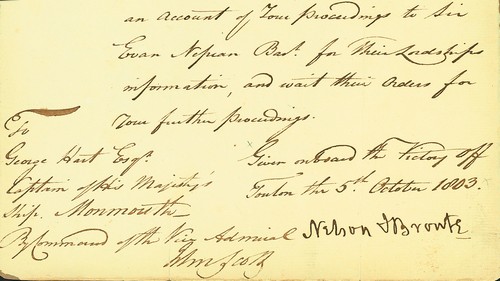 an Account of Your Proceedings to Sir
Evan Nepean Bart. for Their Lordships
information, and wait their Orders for
Your further Proceedings.
To
George Hart Esqr.
Captain of His Majesty's
Ship Monmouth
By Command of the Vice Admiral
Jhn Scott
Given onboard the Victory off
Toulon the 5th October 1803.
Nelson & Bronte